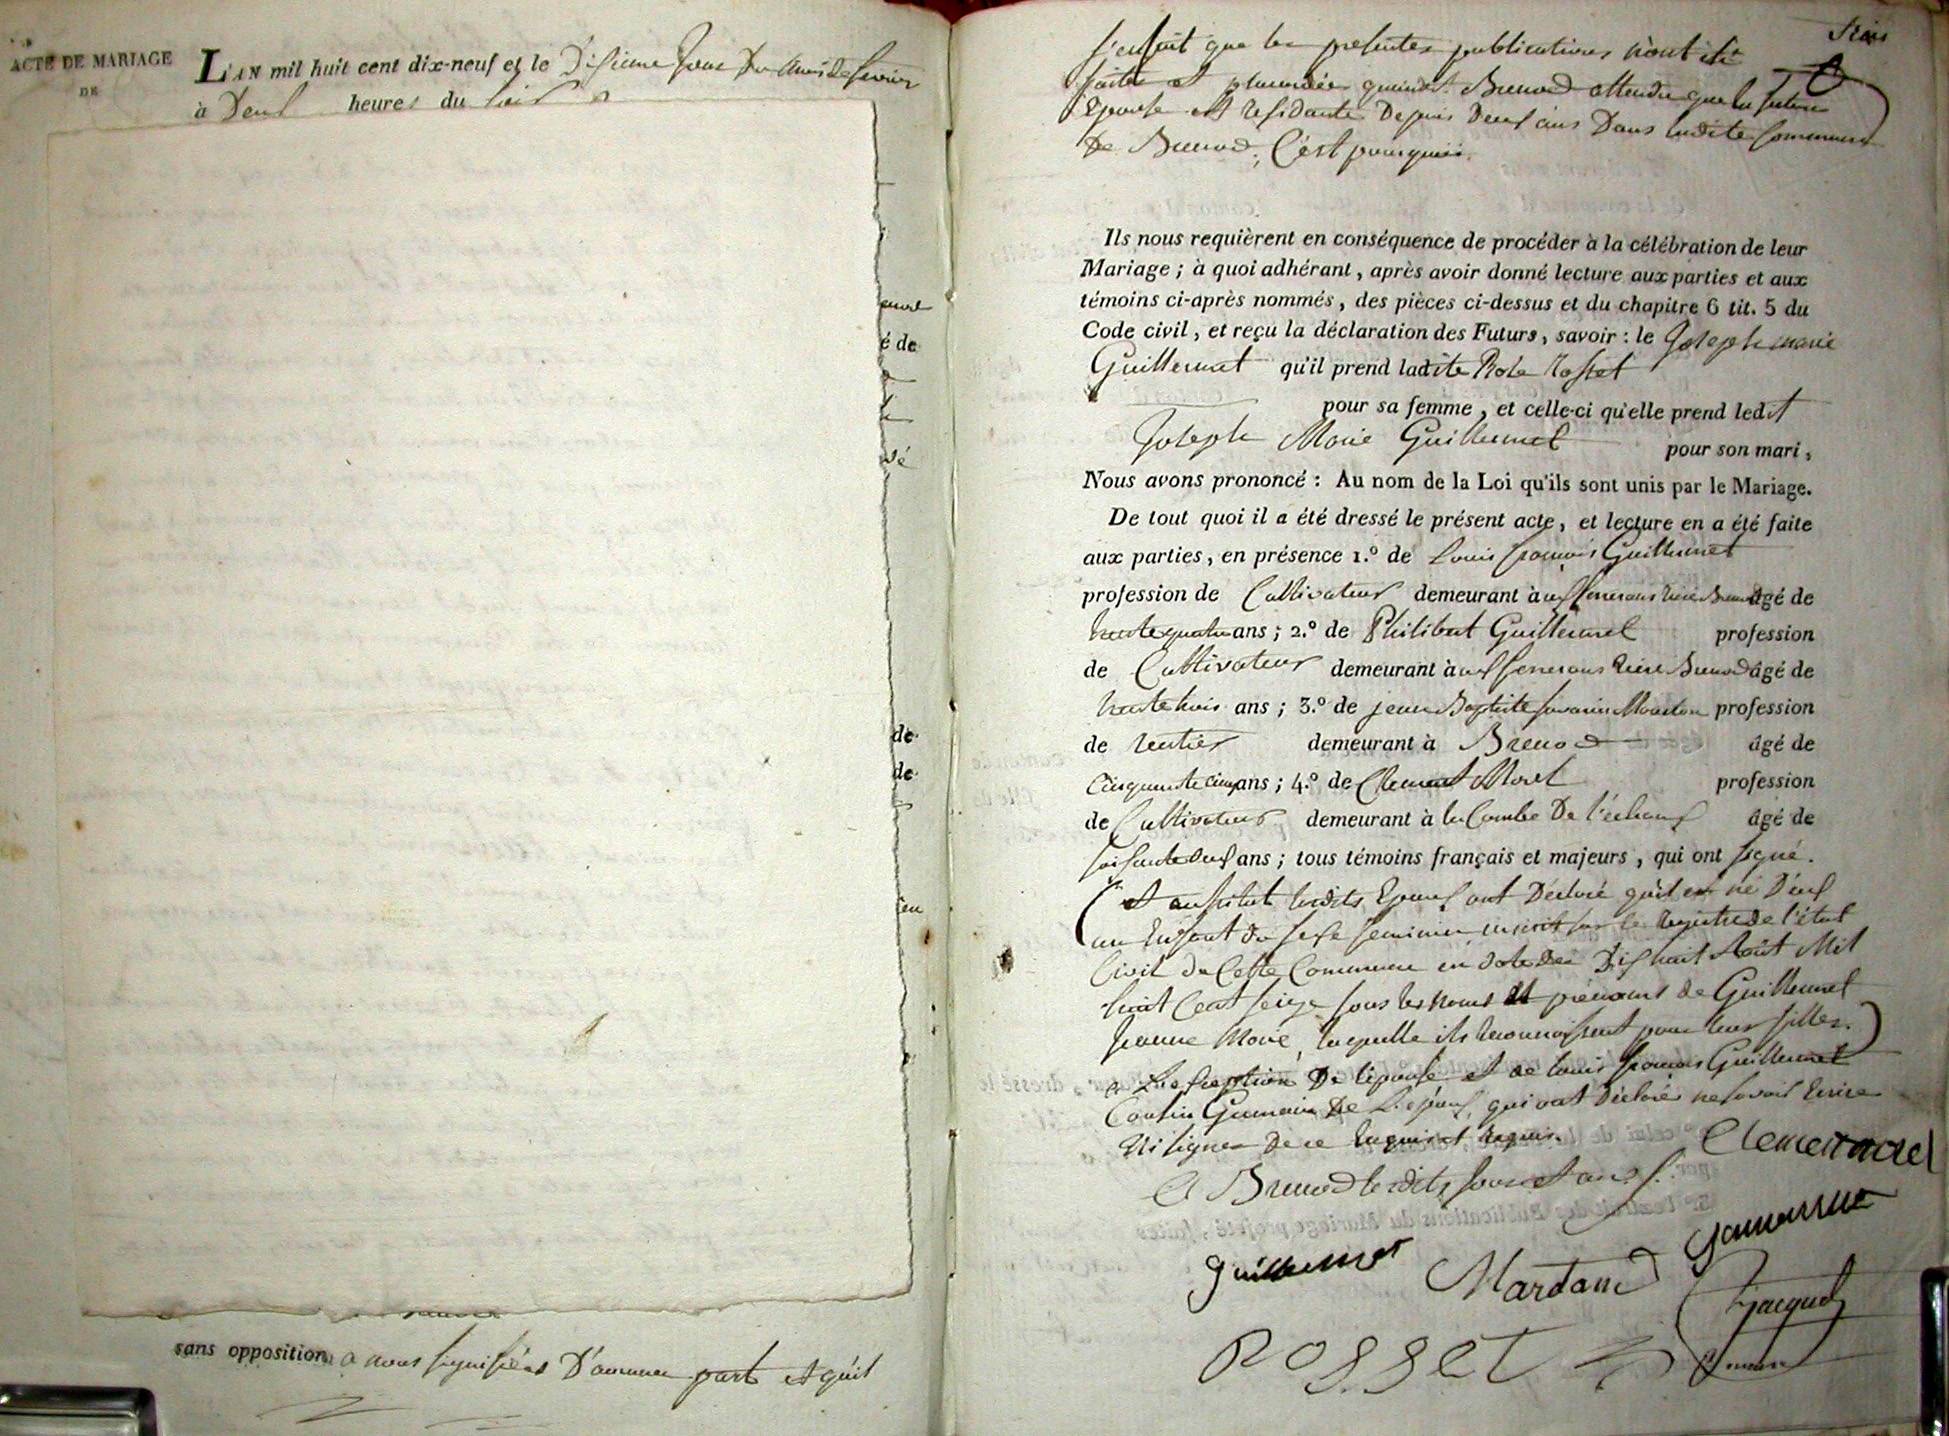 ACTE DE MARIAGE
DE
L'AN mil huit cent dix-neuf et le Dixieme Jour Du mois de fevrier
à Deux heures du soir
é de
sé
de
de
sans opposition a nous signifiées D'aucune part et qu'il
s'ensuit que les presentes publications n'ont été
faites et placardées qu'audit Brenod attendu que la future
Epouse est residante Depuis Deux ans Dans ladite Commune
De Brenod ; C'est pourquoi
Ils nous requièrent en conséquence de procéder à la célébration de leur
Mariage ; à quoi adhérant, après avoir donné lecture aux parties et aux
témoins ci-après nommés, des pièces ci-dessus et du chapitre 6 tit. 5 du
Code civil, et reçu la déclaration des Futurs, savoir : le Joseph marie
Guillermet qu'il prend ladite Rose Rosset
pour sa femme, et celle-ci qu'elle prend ledit
Joseph Marie Guillermet pour son mari,
Nous avons prononcé : Au nom de la Loi qu'ils sont unis par le Mariage.
De tout quoi il a été dressé le présent acte, et lecture en a été faite
aux parties, en présence 1.º de Louis françois Guillermet
profession de Cultivateur demeurant à Brenod âgé de
trente quatre ans ; 2.º de Philibert Guillermet profession
de Cultivateur demeurant à Brenod âgé de
trente trois ans ; 3.º de jean Baptiste profession
de rentier demeurant à Brenod âgé de
Cinquante cinq ans ; 4.º de Clement Morel profession
de Cultivateur demeurant à la Combe De l'échaux âgé de
soixante deux ans ; tous témoins français et majeurs, qui ont signé.
(et aussitot lesdits Epoux ont Déclaré qu'il est né D'eux
un Enfant du sexe feminin inscrit sur le registre de l'état
Civil de Cette Commune en date du Dix huit Août Mil
huit Cent seize sous les noms et prénoms de Guillermet
Jeanne Marie, laquelle ils reconnoissent pour leur fille.)
a L'exception De l'epouse et de Louis françois Guillermet
Cousin Germain De L'epoux, qui ont Déclaré ne savoir Ecrire
Ni signer De ce Enquis et requis.
A Brenod lesdits jour et an
Clement morel
guillermet
Jacquet
ROSSET